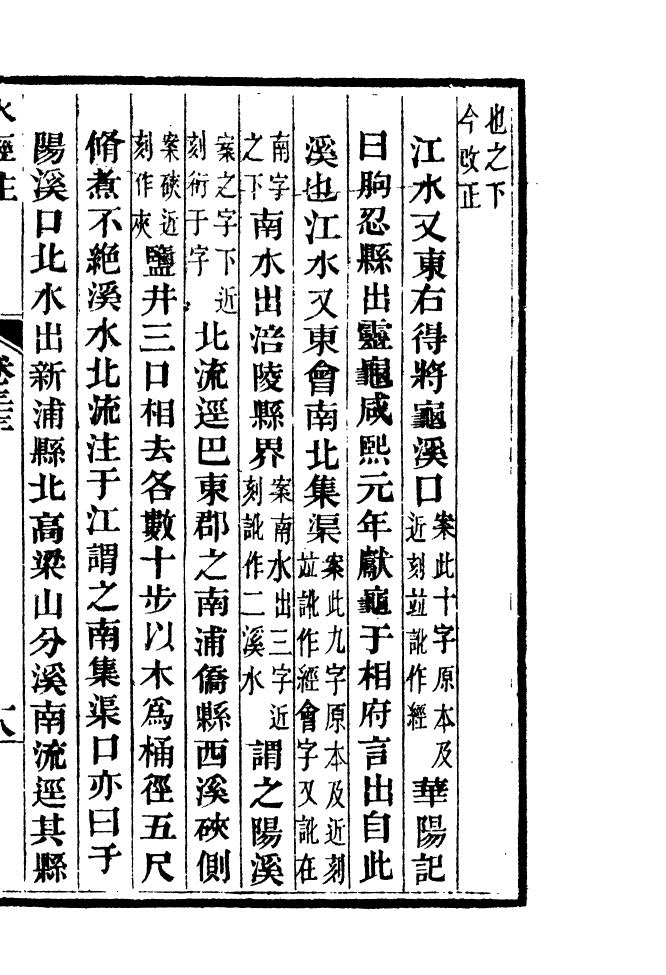 也之下
今改正
江水又東右得將龜溪口案此十字原本及近刻竝訛作經華陽記
曰朐忍縣出靈龜咸熙元年獻龜于相府言出自此
溪也江水又東會南北集渠案此九字原本及近刻竝訛作經會字又訛在
南字之下南水出涪陵縣界案南水出三字近刻訛作二溪水謂之陽溪
案之字下近刻衍于字北流逕巴東郡之南浦僑縣西溪硤側
案硤近刻作夾鹽井三口相去各數十步以木爲桶徑五尺
脩煮不絶溪水北流注于江謂之南集渠口亦曰于
陽溪口北水出新浦縣北高梁山分溪南流逕其縣
水經注 卷三十三 八